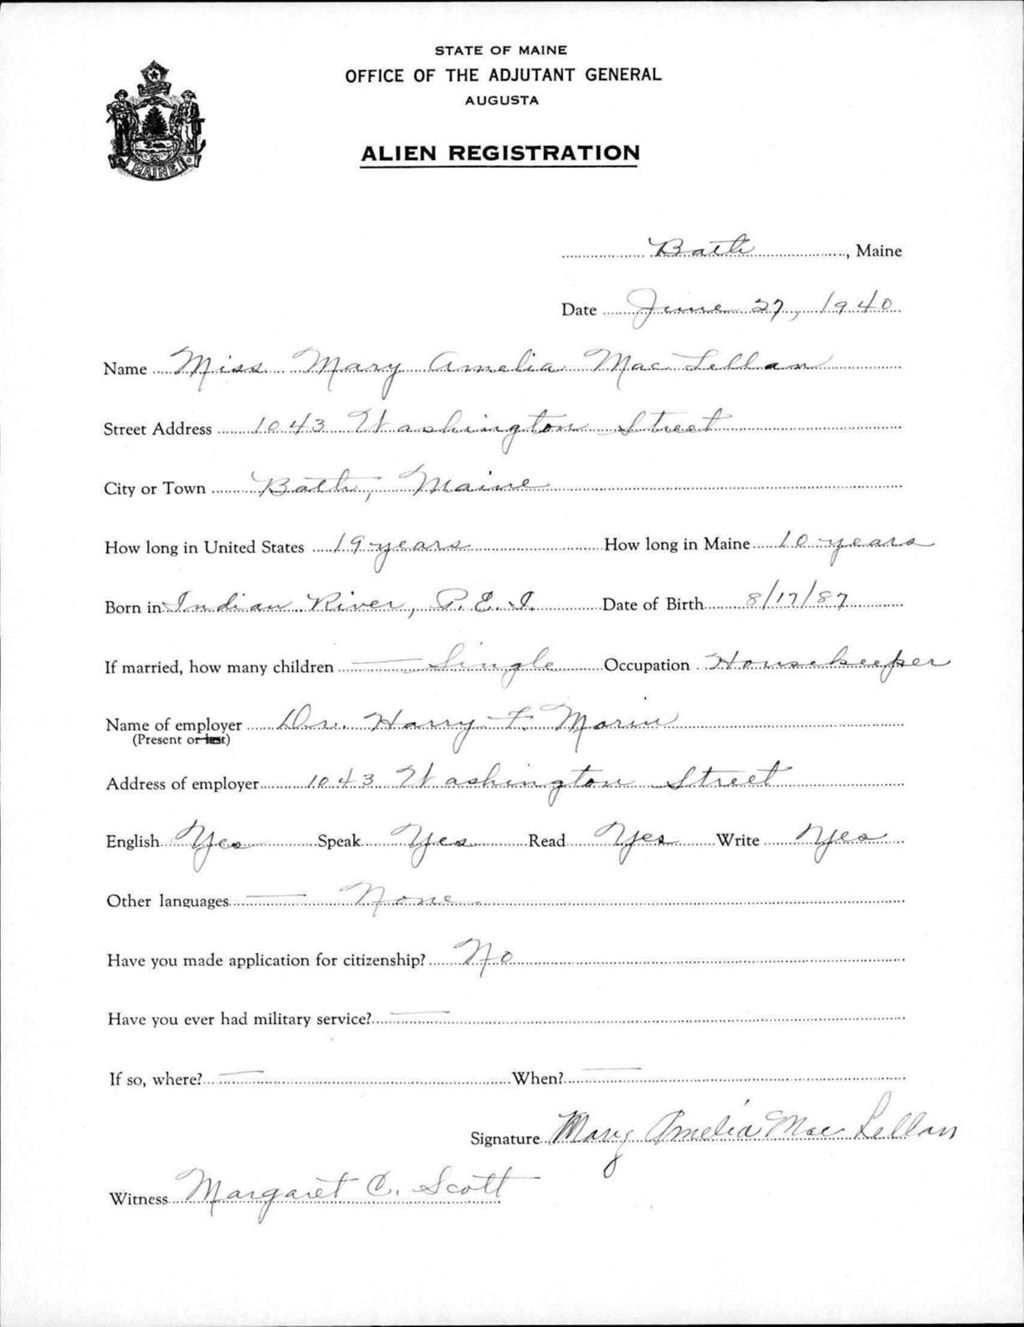 STATE OF MAINE
OFFICE OF THE ADJUTANT GENERAL
AUGUSTA
ALIEN REGISTRATION
MAINE
Bath, Maine
Date June 27, 1940
Name Miss Mary Amelia MacLellan
Street Address 1043 Washington Street
City or Town Bath, Maine
How long in United States 19 years How long in Maine 10 years
Born in Indian River, P.E.I. Date of Birth 8/17/87
If married, how many children — Single Occupation Housekeeper
Name of employer Dr. Harry F. Morin
(Present or last)
Address of employer 1043 Washington Street
English Yes Speak Yes Read Yes Write Yes
Other languages — None.
Have you made application for citizenship? No
Have you ever had military service? —
If so, where? — When? —
Signature Mary Amelia MacLellan
Witness Margaret C. Scott